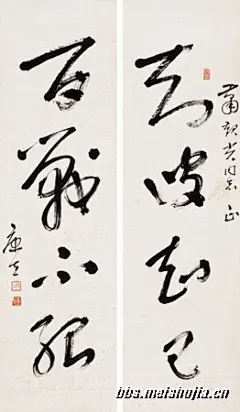 同志 正
知彼知己
百戰不殆
bbs.meishujia.cn